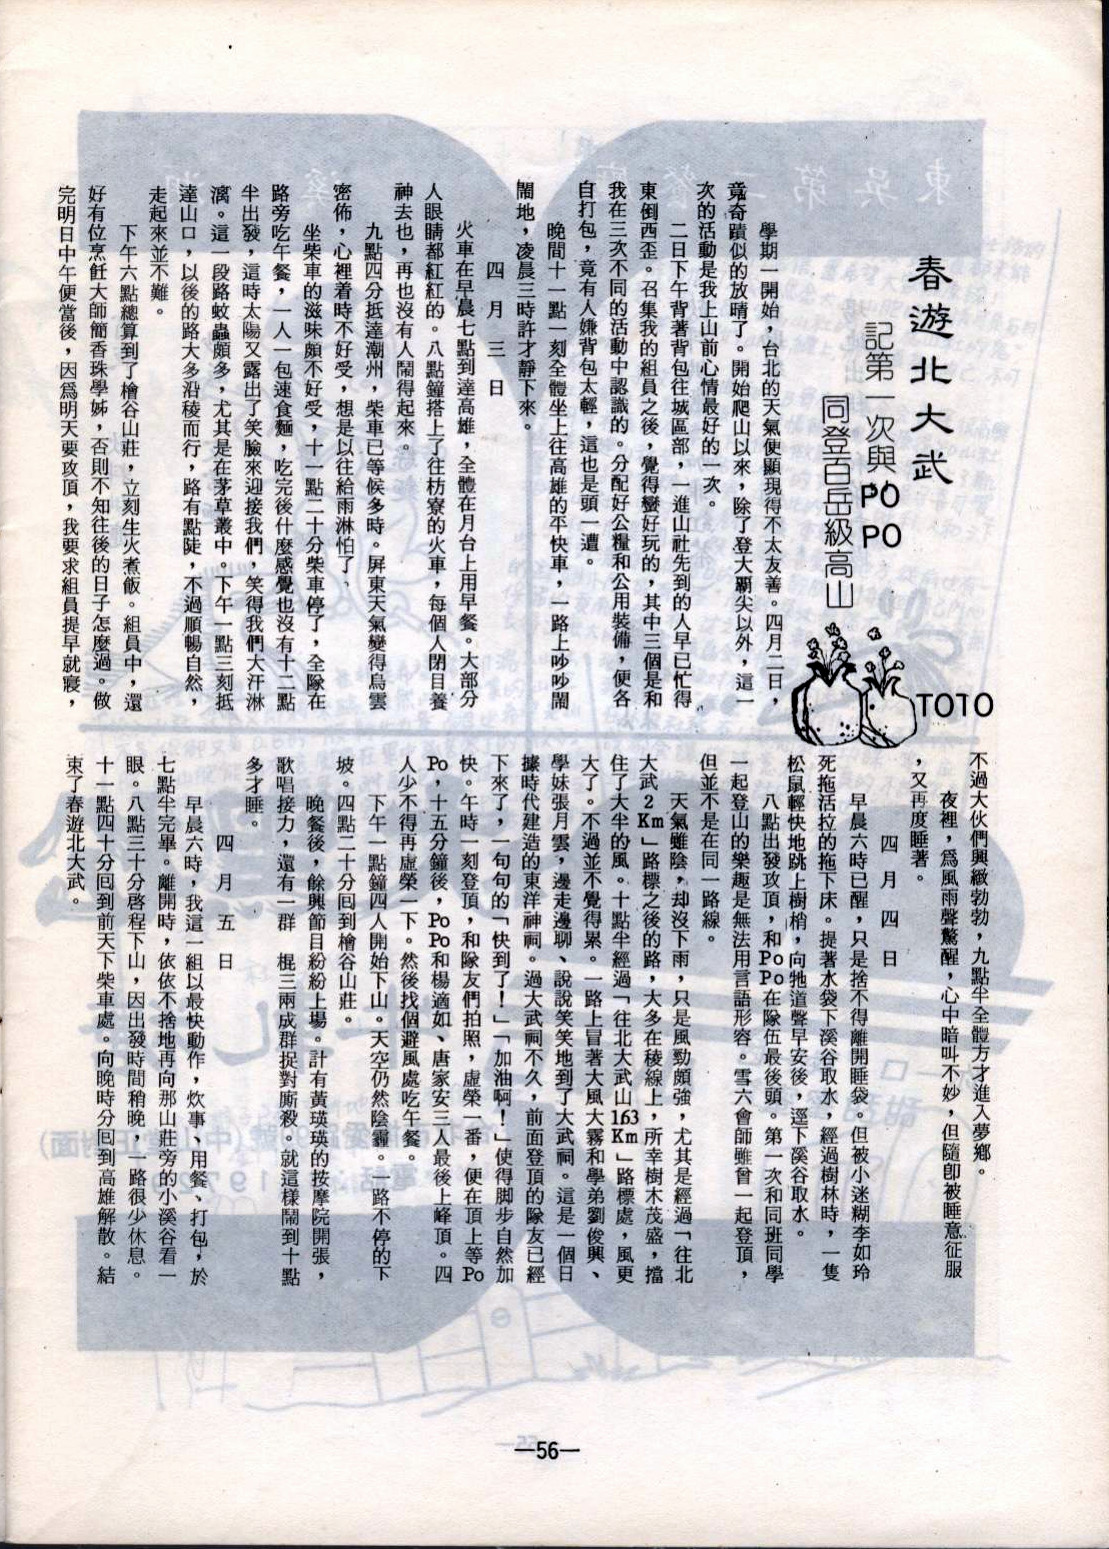 春遊北大武
記第一次與PO PO
同登百岳級高山
TOTO
學期一開始，台北的天氣便顯現得不太友善。四月二日，
竟奇蹟似的放晴了。開始爬山以來，除了登大霸尖以外，這一
次的活動是我上山前心情最好的一次。
二日下午背著背包往城區部，一進山社先到的人早已忙得
東倒西歪。召集我的組員之後，覺得蠻好玩的，其中三個是和
我在三次不同的活動中認識的。分配好公糧和公用裝備，便各
自打包，竟有人嫌背包太輕，這也是頭一遭。
晚間十一點一刻全體坐上往高雄的平快車，一路上吵吵鬧
鬧地，凌晨三時許才靜下來。
四月三日
火車在早晨七點到達高雄，全體在月台上用早餐。大部分
人眼睛都紅紅的。八點鐘搭上了往枋寮的火車，每個人閉目養
神去也，再也沒有人鬧得起來。
九點四分抵達潮州，柴車已等候多時。屏東天氣變得烏雲
密佈，心裡着時不好受，想是以往給雨淋怕了。
坐柴車的滋味頗不好受，十一點二十分柴車停了，全隊在
路旁吃午餐，一人一包速食麵，吃完後什麼感覺也沒有十二點
半出發，這時太陽又露出了笑臉來迎接我們，笑得我們大汗淋
漓。這一段路蚊蟲頗多，尤其是在茅草叢中。下午一點三刻抵
達山口，以後的路大多沿稜而行，路有點陡，不過順暢自然，
走起來並不難。
下午六點總算到了檜谷山莊，立刻生火煮飯。組員中，還
好有位烹飪大師簡香珠學姊，否則不知往後的日子怎麼過。做
完明日中午便當後，因爲明天要攻頂，我要求組員提早就寢，
不過大伙們興緻勃勃，九點半全體方才進入夢鄉。
夜裡，爲風雨聲驚醒，心中暗叫不妙，但隨卽被睡意征服
，又再度睡著。
四月四日
早晨六時已醒，只是捨不得離開睡袋。但被小迷糊李如玲
死拖活拉的拖下床。提著水袋下溪谷取水，經過樹林時，一隻
松鼠輕快地跳上樹梢，向牠道聲早安後，逕下溪谷取水。
八點出發攻頂，和PoPo在隊伍最後頭。第一次和同班同學
一起登山的樂趣是無法用言語形容。雪六會師雖曾一起登頂，
但並不是在同一路線。
天氣雖陰，却沒下雨，只是風勁頗強，尤其是經過「往北
大武2Km」路標之後的路，大多在稜線上，所幸樹木茂盛，擋
住了大半的風。十點半經過「往北大武山163Km」路標處，風更
大了。不過並不覺得累。一路上冒著大風大霧和學弟劉俊興、
學妹張月雲，邊走邊聊、說說笑笑地到了大武祠。這是一個日
據時代建造的東洋神祠。過大武祠不久，前面登頂的隊友已經
下來了，一句句的「快到了！」「加油啊！」使得脚步自然加
快。午時一刻登頂，和隊友們拍照，虛榮一番，便在頂上等Po
Po，十五分鐘後，PoPo和楊適如、唐家安三人最後上峰頂。四
人少不得再虛榮一下。然後找個避風處吃午餐。
下午一點鐘四人開始下山。天空仍然陰霾。一路不停的下
坡。四點二十分回到檜谷山莊。
晚餐後，餘興節目紛紛上場。計有黃瑛瑛的按摩院開張，
歌唱接力，還有一群　棍三兩成群捉對廝殺。就這樣鬧到十點
多才睡。
四月五日
早晨六時，我這一組以最快動作，炊事、用餐、打包，於
七點半完畢。離開時，依依不捨地再向那山莊旁的小溪谷看一
眼。八點三十分啓程下山，因出發時間稍晚，一路很少休息。
十一點四十分回到前天下柴車處。向晚時分回到高雄解散。結
束了春遊北大武。
—56—